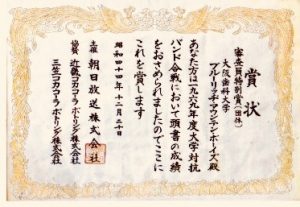 賞状
審査員特別賞(団体)
大阪歯科大学
ブルーリッヂマウンテンボーイズ殿
あなた方は一九六九年度大学対抗
バンド合戦において頭書の成績
をおさめられましたのでここに
これを賞します
昭和四十四年十二月二十日
主催 朝日放送株式会社
協賛 近畿コカコーラボトリング株式会社
三笠コカコーラボトリング株式会社